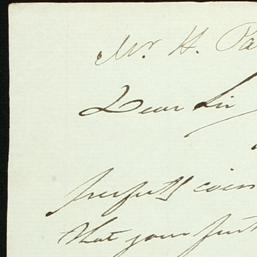 Mr. H. Pa
Dear Sir
perfectly coin
that your furt